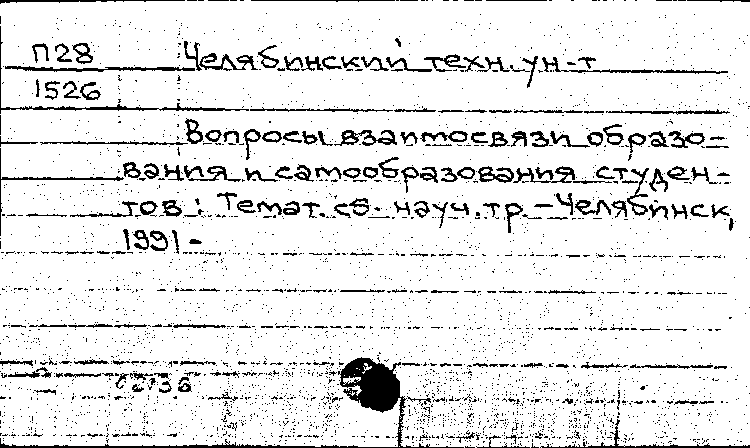 П28 Челябинский техн. ун-т
1526
Вопросы взаимосвязи образо-
вания и самообразования студен-
тов : Темат. сб. науч. тр. - Челябинск,
1991 -